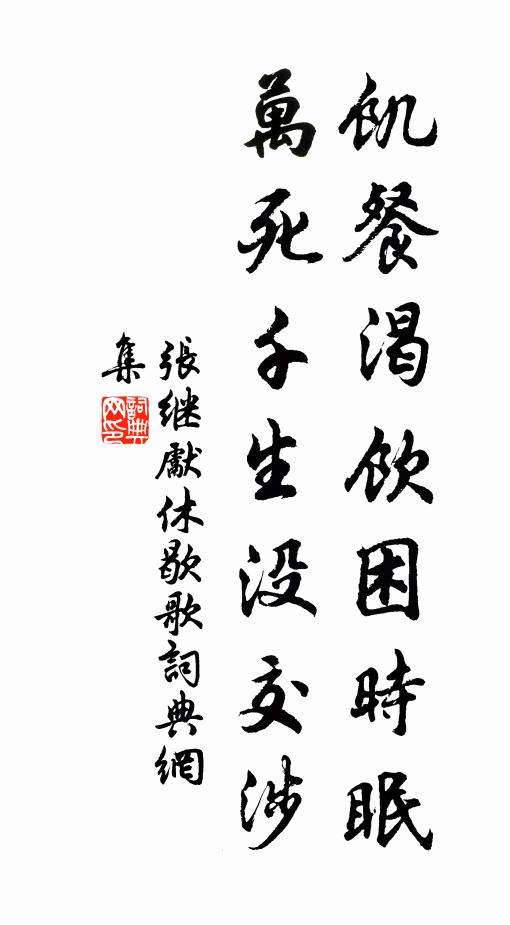 飢餐渴飲困時眠
萬死千生没交涉
張継獻休歇歌詞典網
集
詞典
网印